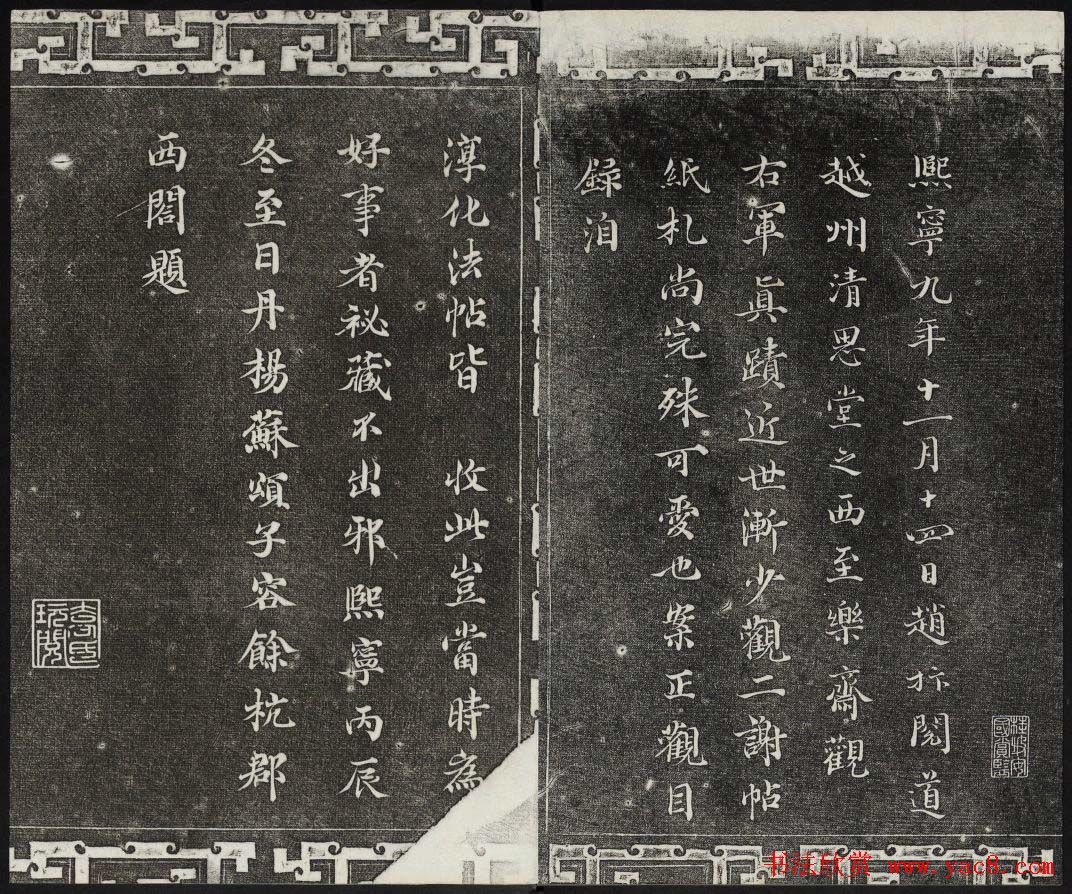 熙寧九年十一月十四日趙抃閱道
越州清思堂之西至樂齋觀
右軍眞蹟近世漸少觀二謝帖
紙札尚完殊可愛也案正觀目
錄洎
淳化法帖皆 收此豈當時為
好事者祕藏不出邪熙寧丙辰
冬至日丹揚蘇頌子容餘杭郡
西閣題
書法欣赏 www.yac8.com